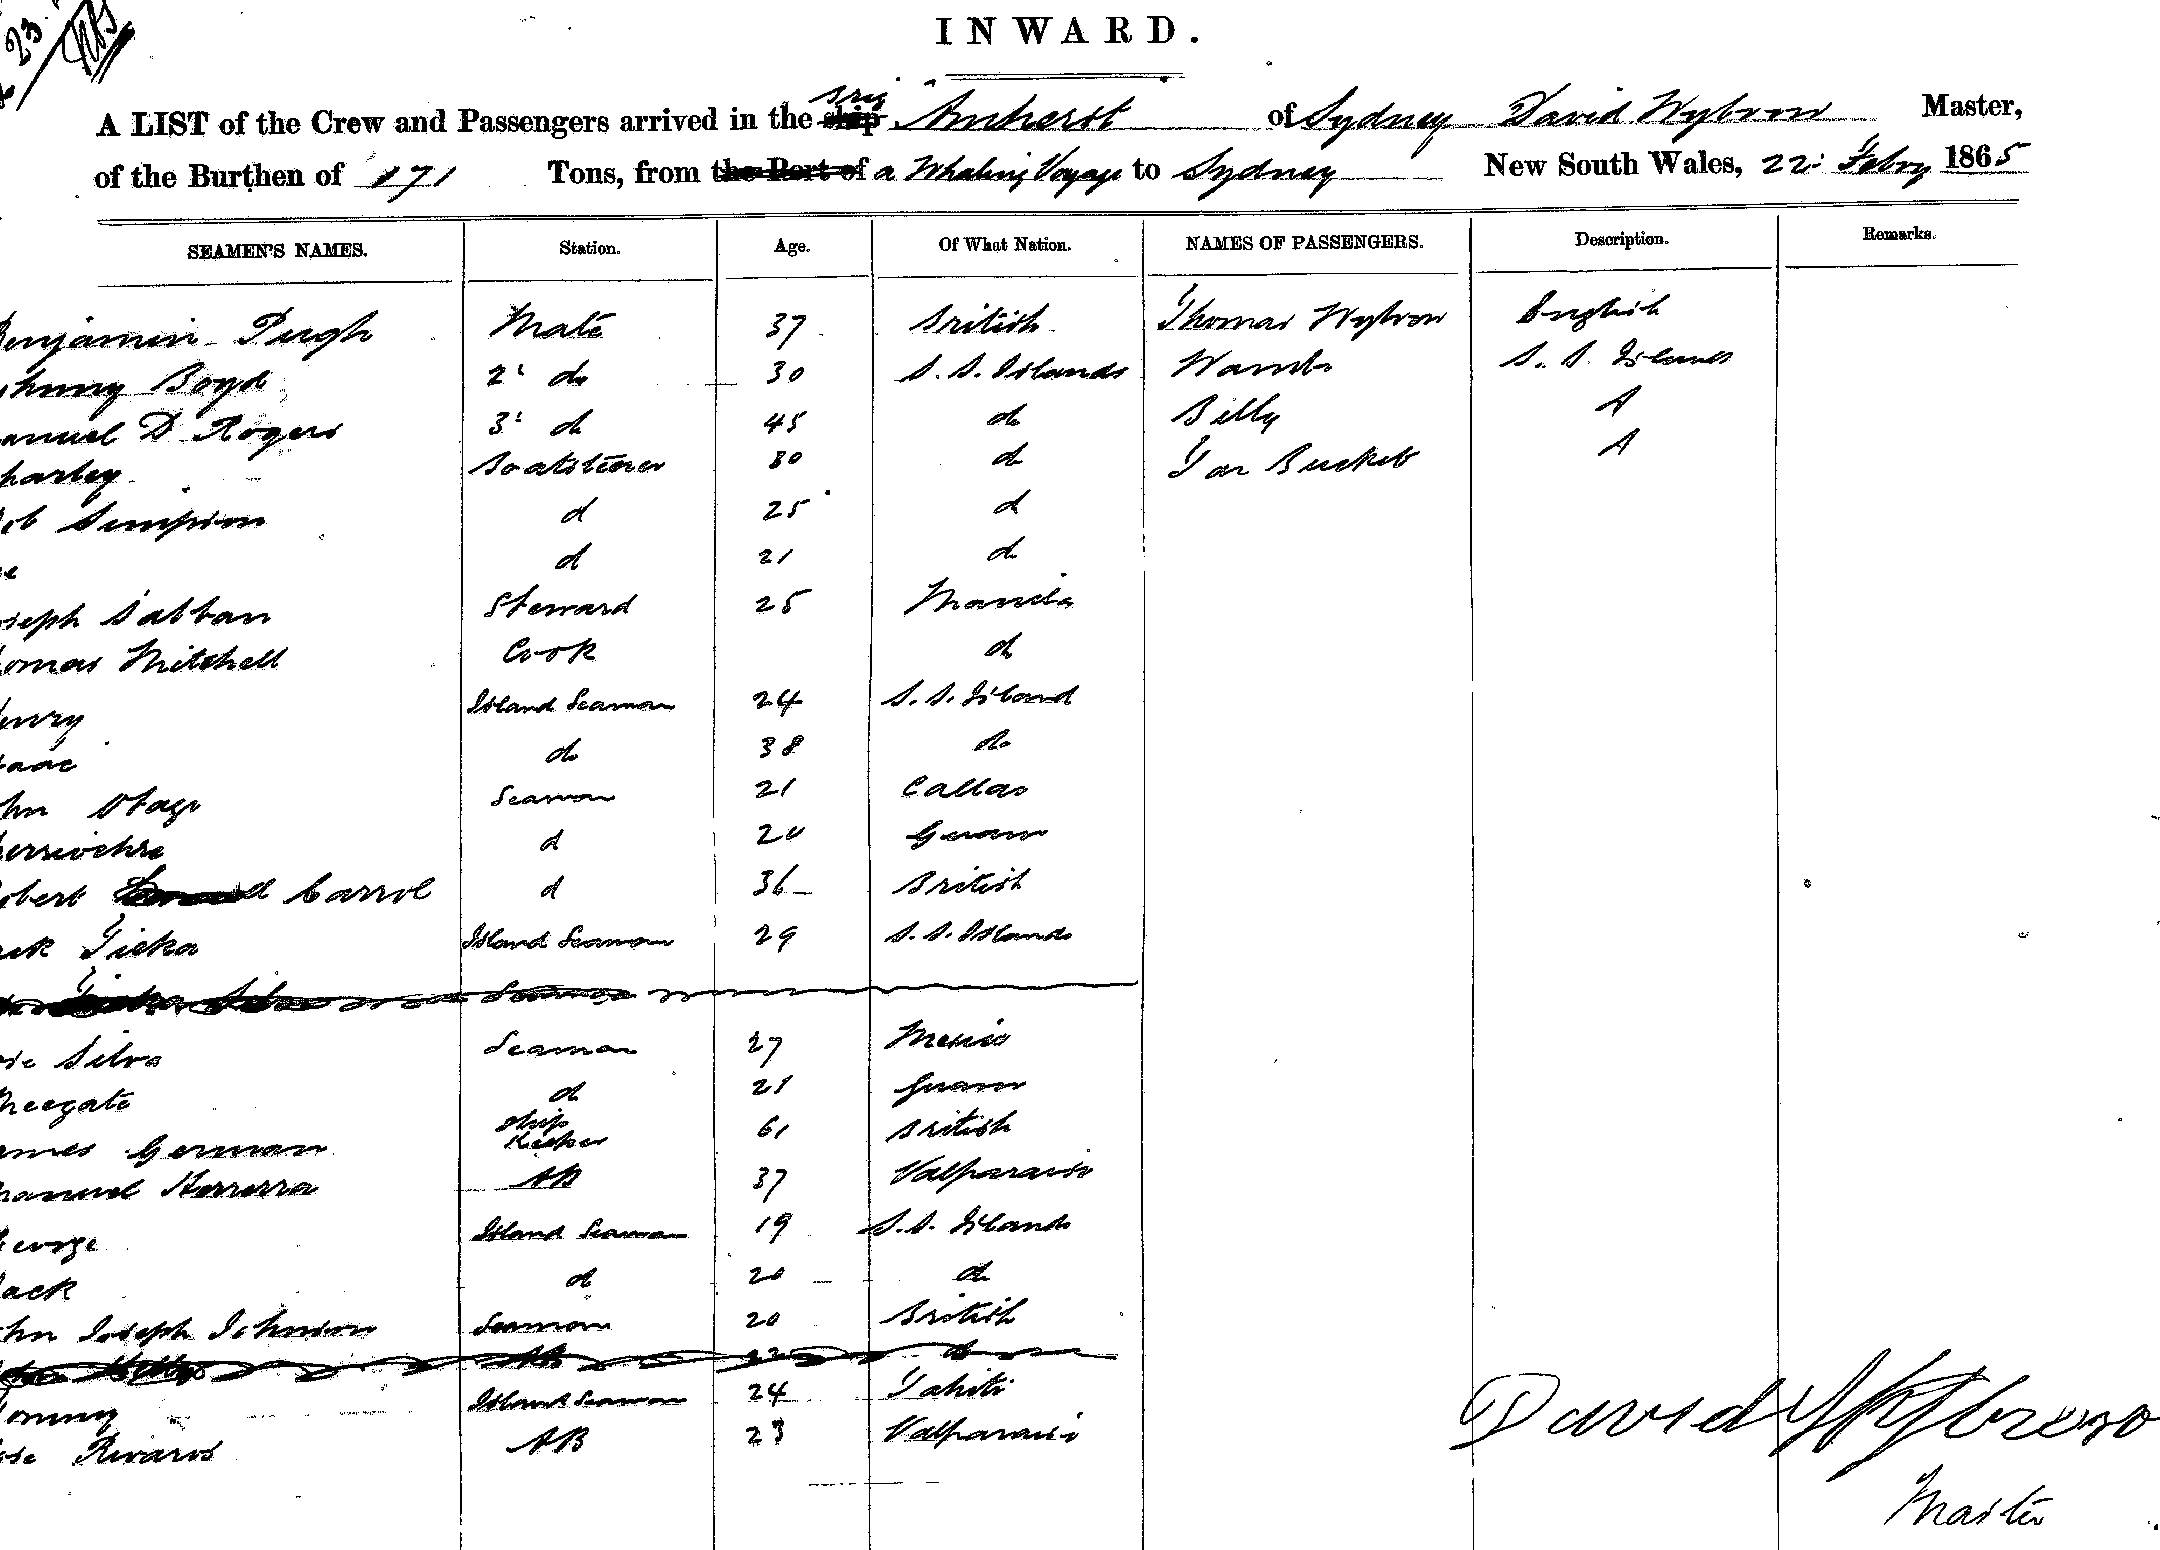 23
INWARD.
A LIST of the Crew and Passengers arrived in the ship brig Amherst of Sydney David Wybrow Master,
of the Burthen of 171 Tons, from the Port of a Whaling Voyage to Sydney New South Wales, 22: Febry 1865
SEAMEN'S NAMES. Station. Age. Of What Nation. NAMES OF PASSENGERS. Description. Remarks.
enjamin Pugh Mate 37 British Thomas Wybrow English
hnny Boyd 2d do 30 S. S. Islands S. S. Islands
anuel D Rogers 3d do 45 do Billy d
harley Boatsteerer 30 do Tar Bucket d
ob Simpson d 25 d
e d 21 do
oseph Sabban Steward 25 Manila
omas Mitchell Cook do
enry Island Seaman 24 S. S. Island
saac do 38 do
hn Otago Seaman 21 Callao
d 20 Guam
obert Carrol d 36 British
ack Ticka Island Seaman 29 S. S. Islands
Seaman
ose Silva Seaman 27 Mexico
heegate d 21 Guam
ames German Ship Keeper 61 British
anuel Herrerra AB 37 Valparaiso
eorge Island Seaman 19 S. S. Islands
ack d 20 do
hn Joseph Johnson Seaman 20 British
AB do
ommy Island Seaman 24 Tahiti
ose Rivaros AB 23 Valparaiso
David Wybrow
Master